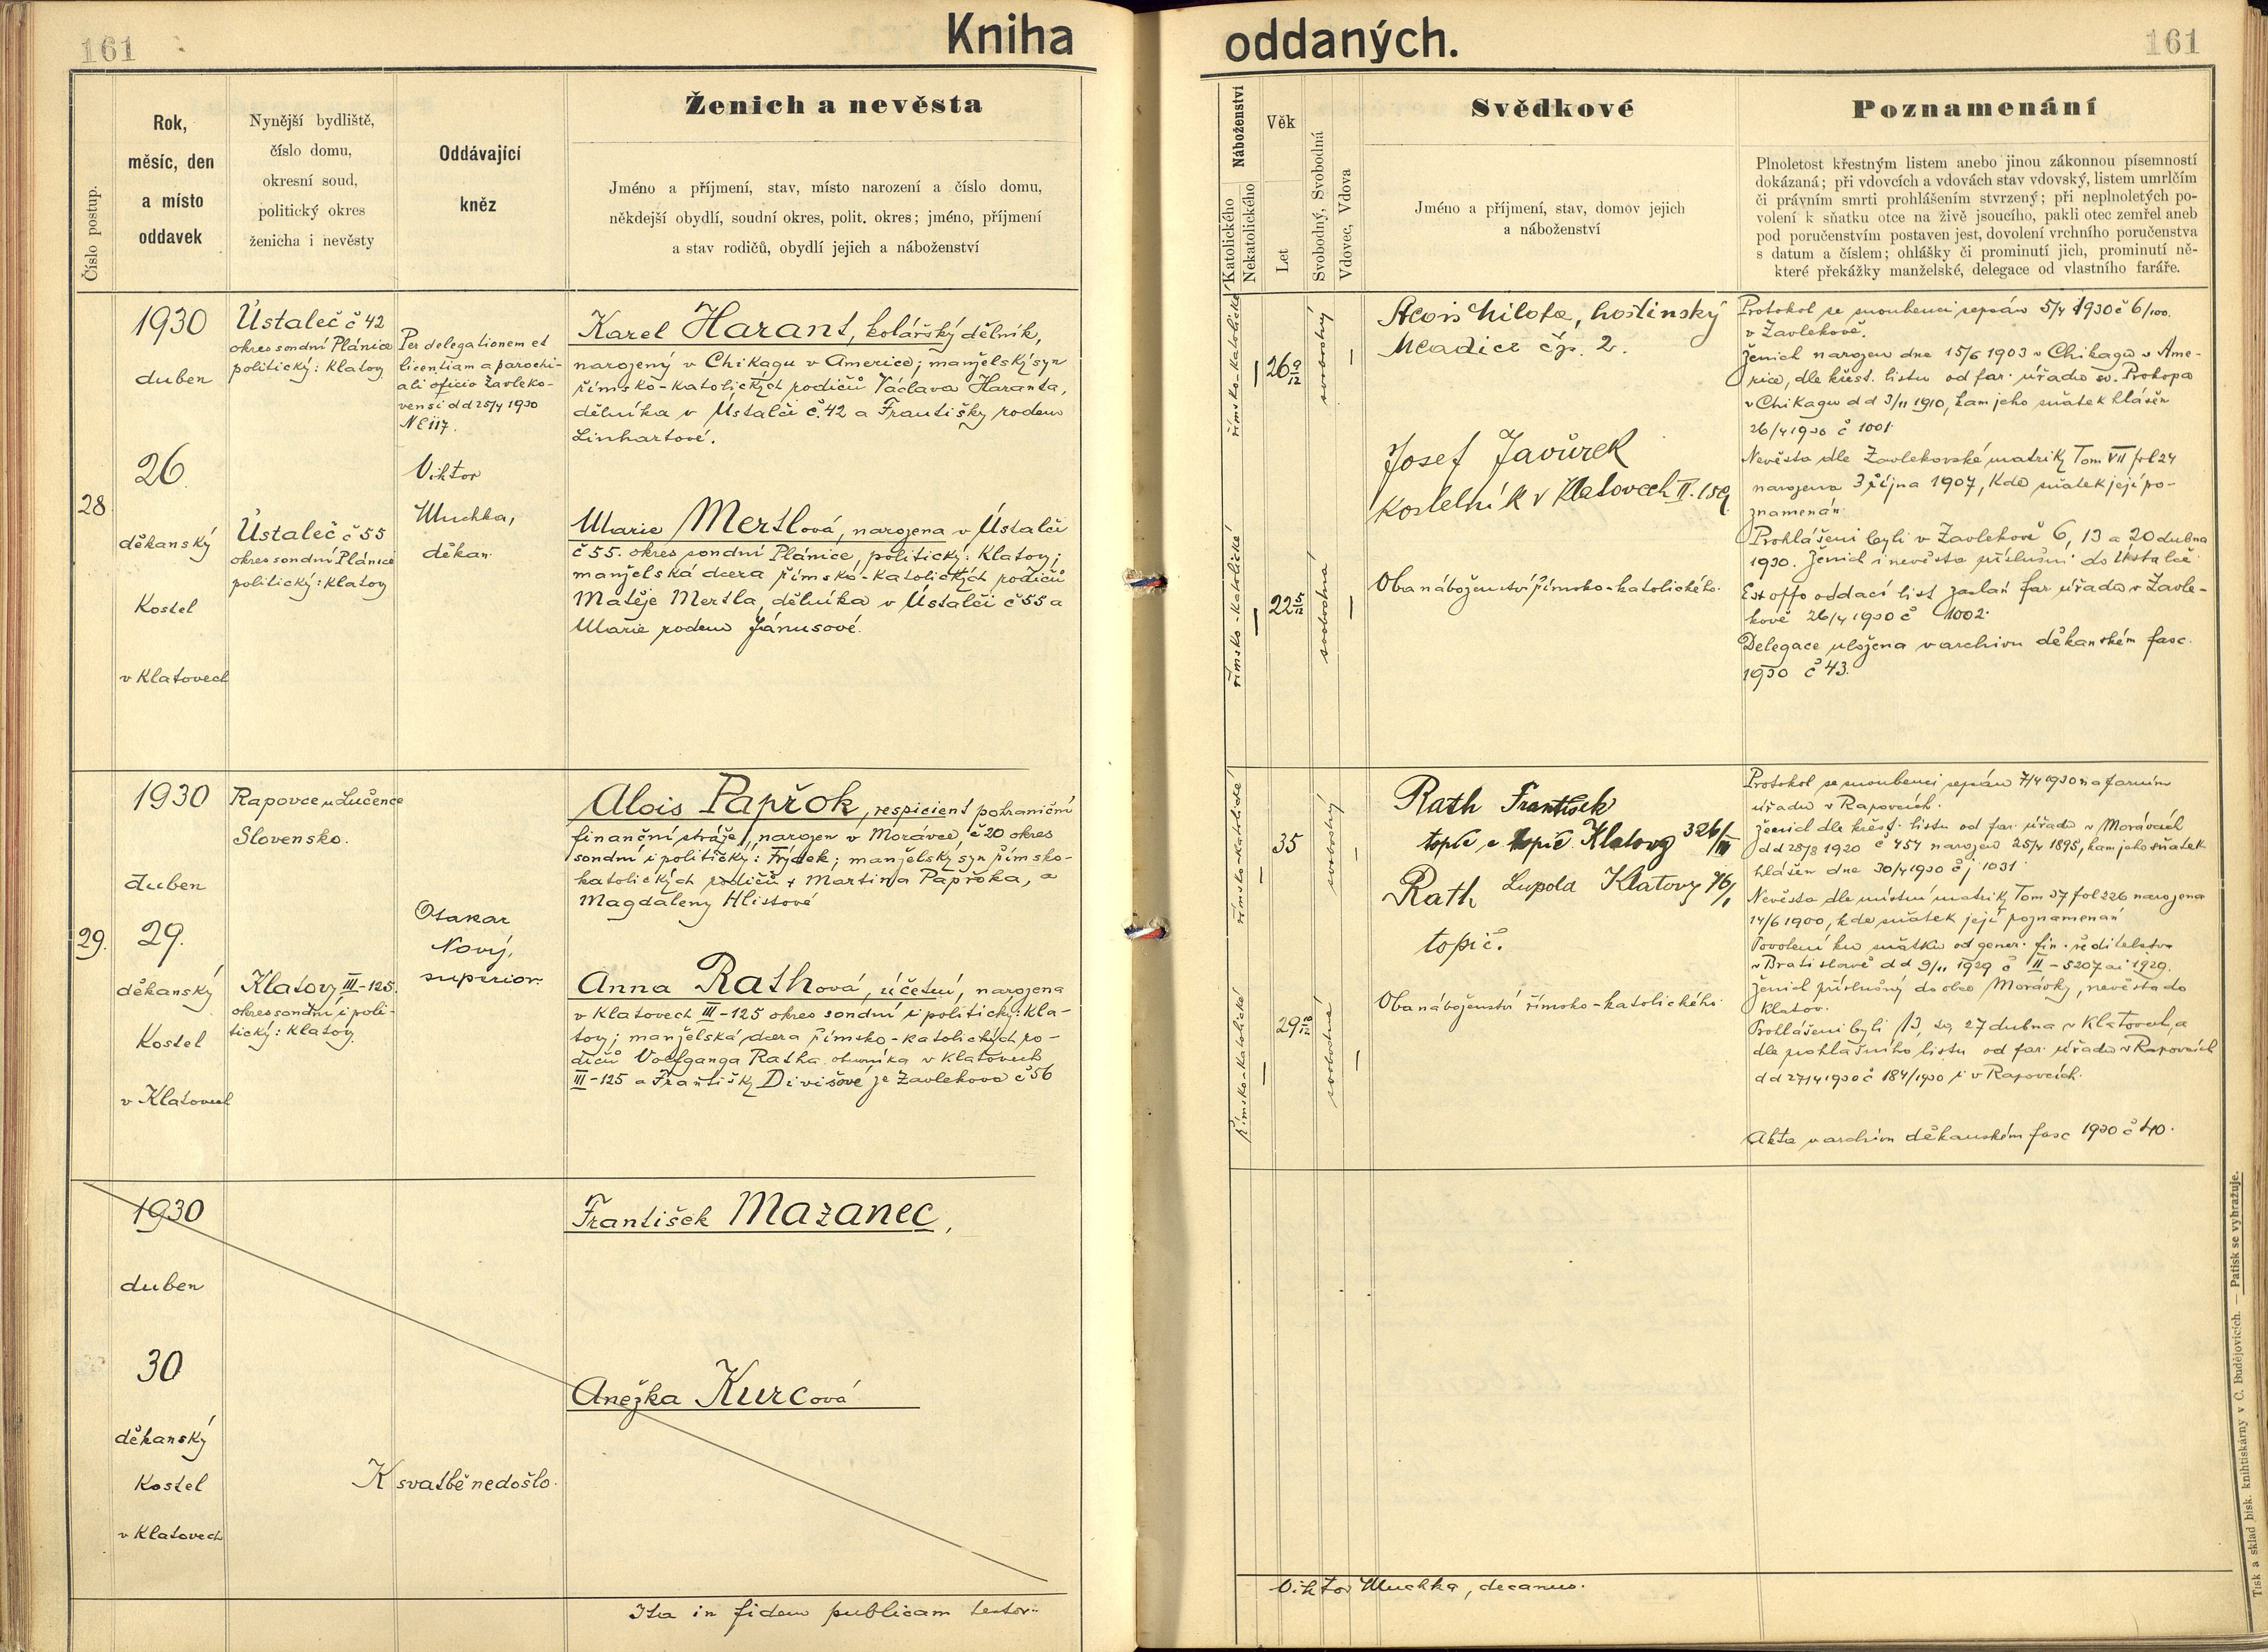 161
Kniha
oddaných.
161
Číslo postup.
Rok,
měsíc, den
a místo
oddavek
Nynější bydliště,
číslo domu,
okresní soud,
politický okres
ženicha i nevěsty
Oddávající
kněz
Ženich a nevěsta
Jméno a příjmení, stav, místo narození a číslo domu,
někdejší obydlí, soudní okres, polit. okres; jméno, příjmení
a stav rodičů, obydlí jejich a náboženství
Náboženství
Katolického
Nekatolického
Věk
Let
Svobodný, Svobodná
Vdovec, Vdova
Svědkové
Jméno a příjmení, stav, domov jejich
a náboženství
Poznamenání
Plnoletost křestným listem anebo jinou zákonnou písemností
dokázaná; při vdovcích a vdovách stav vdovský, listem umrlčím
či právním smrti prohlášením stvrzený; při neplnoletých po-
volení k sňatku otce na živě jsoucího, pakli otec zemřel aneb
pod poručenstvím postaven jest, dovolení vrchního poručenstva
s datum a číslem; ohlášky či prominutí jich, prominutí ně-
které překážky manželské, delegace od vlastního faráře.
28
1930
duben
26.
děkanský
Kostel
v Klatovech
Ústaleč č 42
okres soudní Plánice
politický: Klatovy
Ústaleč č 55
okres soudní Plánice
politický: Klatovy
Per delegationem et
licentiam a parochi-
ali oficio Zavleko-
vensi d d 25/4 1930
NE 117.
Viktor
Muchka,
děkan.
Karel Harant, kolářský dělník,
narozený v Chikagu v Americe; manželský syn
římsko-katolických rodičů Václava Haranta,
dělníka v Ústalči č. 42 a Františky rodem
Linhartové.
Marie Mertlová, narozena v Ústalči
č 55. okres soudní Plánice, politický: Klatovy;
manželská dcera římsko-katolických rodičů
Matěje Mertla, dělníka v Ústalči č 55 a
Marie rodem Jánusové.
římsko-katolické
26 9/12
svobodný
římsko-katolické
22 5/12
svobodná
Alois Milota, hostinský
Mladice čp. 2.
Josef Javůrek
kostelník v Klatovech II. 159
Oba náboženství římsko-katolického.
Protokol se snoubenci sepsán 5/4 1930 č 6/100.
v Zavlekově.
Ženich narozen dne 15/6 1903 v Chikagu v Ame-
rice, dle křest. listu od far. úřadu sv. Prokopa
v Chikagu d d 3/11 1910, kam jeho sňatek hlášen
26/4 1930 č 1001.
Nevěsta dle Zavlekovské matriky Tom VII fol 24
narozena 3 října 1907, kde sňatek její po-
znamenán.
Prohlášeni byli v Zavlekově 6, 13 a 20 dubna
1930. Ženich i nevěsta příslušní do Ústalče
Ex offo oddací list zaslán far. úřadu v Zavle-
kově 26/4 1930 č 1002.
Delegace uložena v archivu děkanském fasc.
1930 č 43.
29.
1930
duben
29.
děkanský
Kostel
v Klatovech
Rapovce u Lučence
Slovensko.
Klatovy III-125.
okres soudní i poli-
tický: Klatovy
Otakar
Nový,
superior.
Alois Papřok, respicient pohraniční
finanční stráže, narozen v Morávce, č 20 okres
soudní i politický: Frýdek; manželský syn římsko-
katolických rodičů + Martina Papřoka, a
Magdaleny Hlistové
Anna Rathová, účetní, narozena
v Klatovech III-125 okres soudní i politický: Kla-
tovy; manželská dcera římsko-katolických ro-
dičů Volfganga Ratha obuvníka v Klatovech
III-125 a Františky Divišové ze Zavlekova č 56
římsko-katolické
35
svobodný
římsko-katolické
29 10/12
svobodná
Rath František
topič Klatovy 326/III
Rath Lupold Klatovy 76/I
topič.
Oba náboženství římsko-katolického.
Protokol se snoubenci sepsán 7/4 1930 na farním
úřadu v Rapovcích.
Ženich dle křest. listu od far. úřadu v Morávce
d d 28/8 1920 č 454 narozen 25/4 1895, kam jeho sňatek
hlášen dne 30/4 1930 čj 1031
Nevěsta dle místní matriky Tom 37 fol 226 narozena
14/6 1900, kde sňatek její poznamenán
Povolení ku sňatku od gener. fin. ředitelstva
v Bratislavě d d 9/11 1929 č II-5207 ai 1929.
Ženich příslušný do obce Morávky, nevěsta do
Klatov.
Prohlášeni byli 13, 20, 27 dubna v Klatovech, a
dle prohlašního listu od far. úřadu v Rapovcích
d d 27/4 1930 č 184/1930 i v Rapovcích.
Akta v archivu děkanském fasc 1930 č 40.
1930
duben
30
děkanský
Kostel
v Klatovech
K svatbě nedošlo.
František Mazanec,
Anežka Kurcová
Ita in fidem publicam testor:
Viktor Muchka, decanus.
Tisk a sklad bisk. knihtiskárny v Č. Budějovicích. — Patisk se vyhražuje.